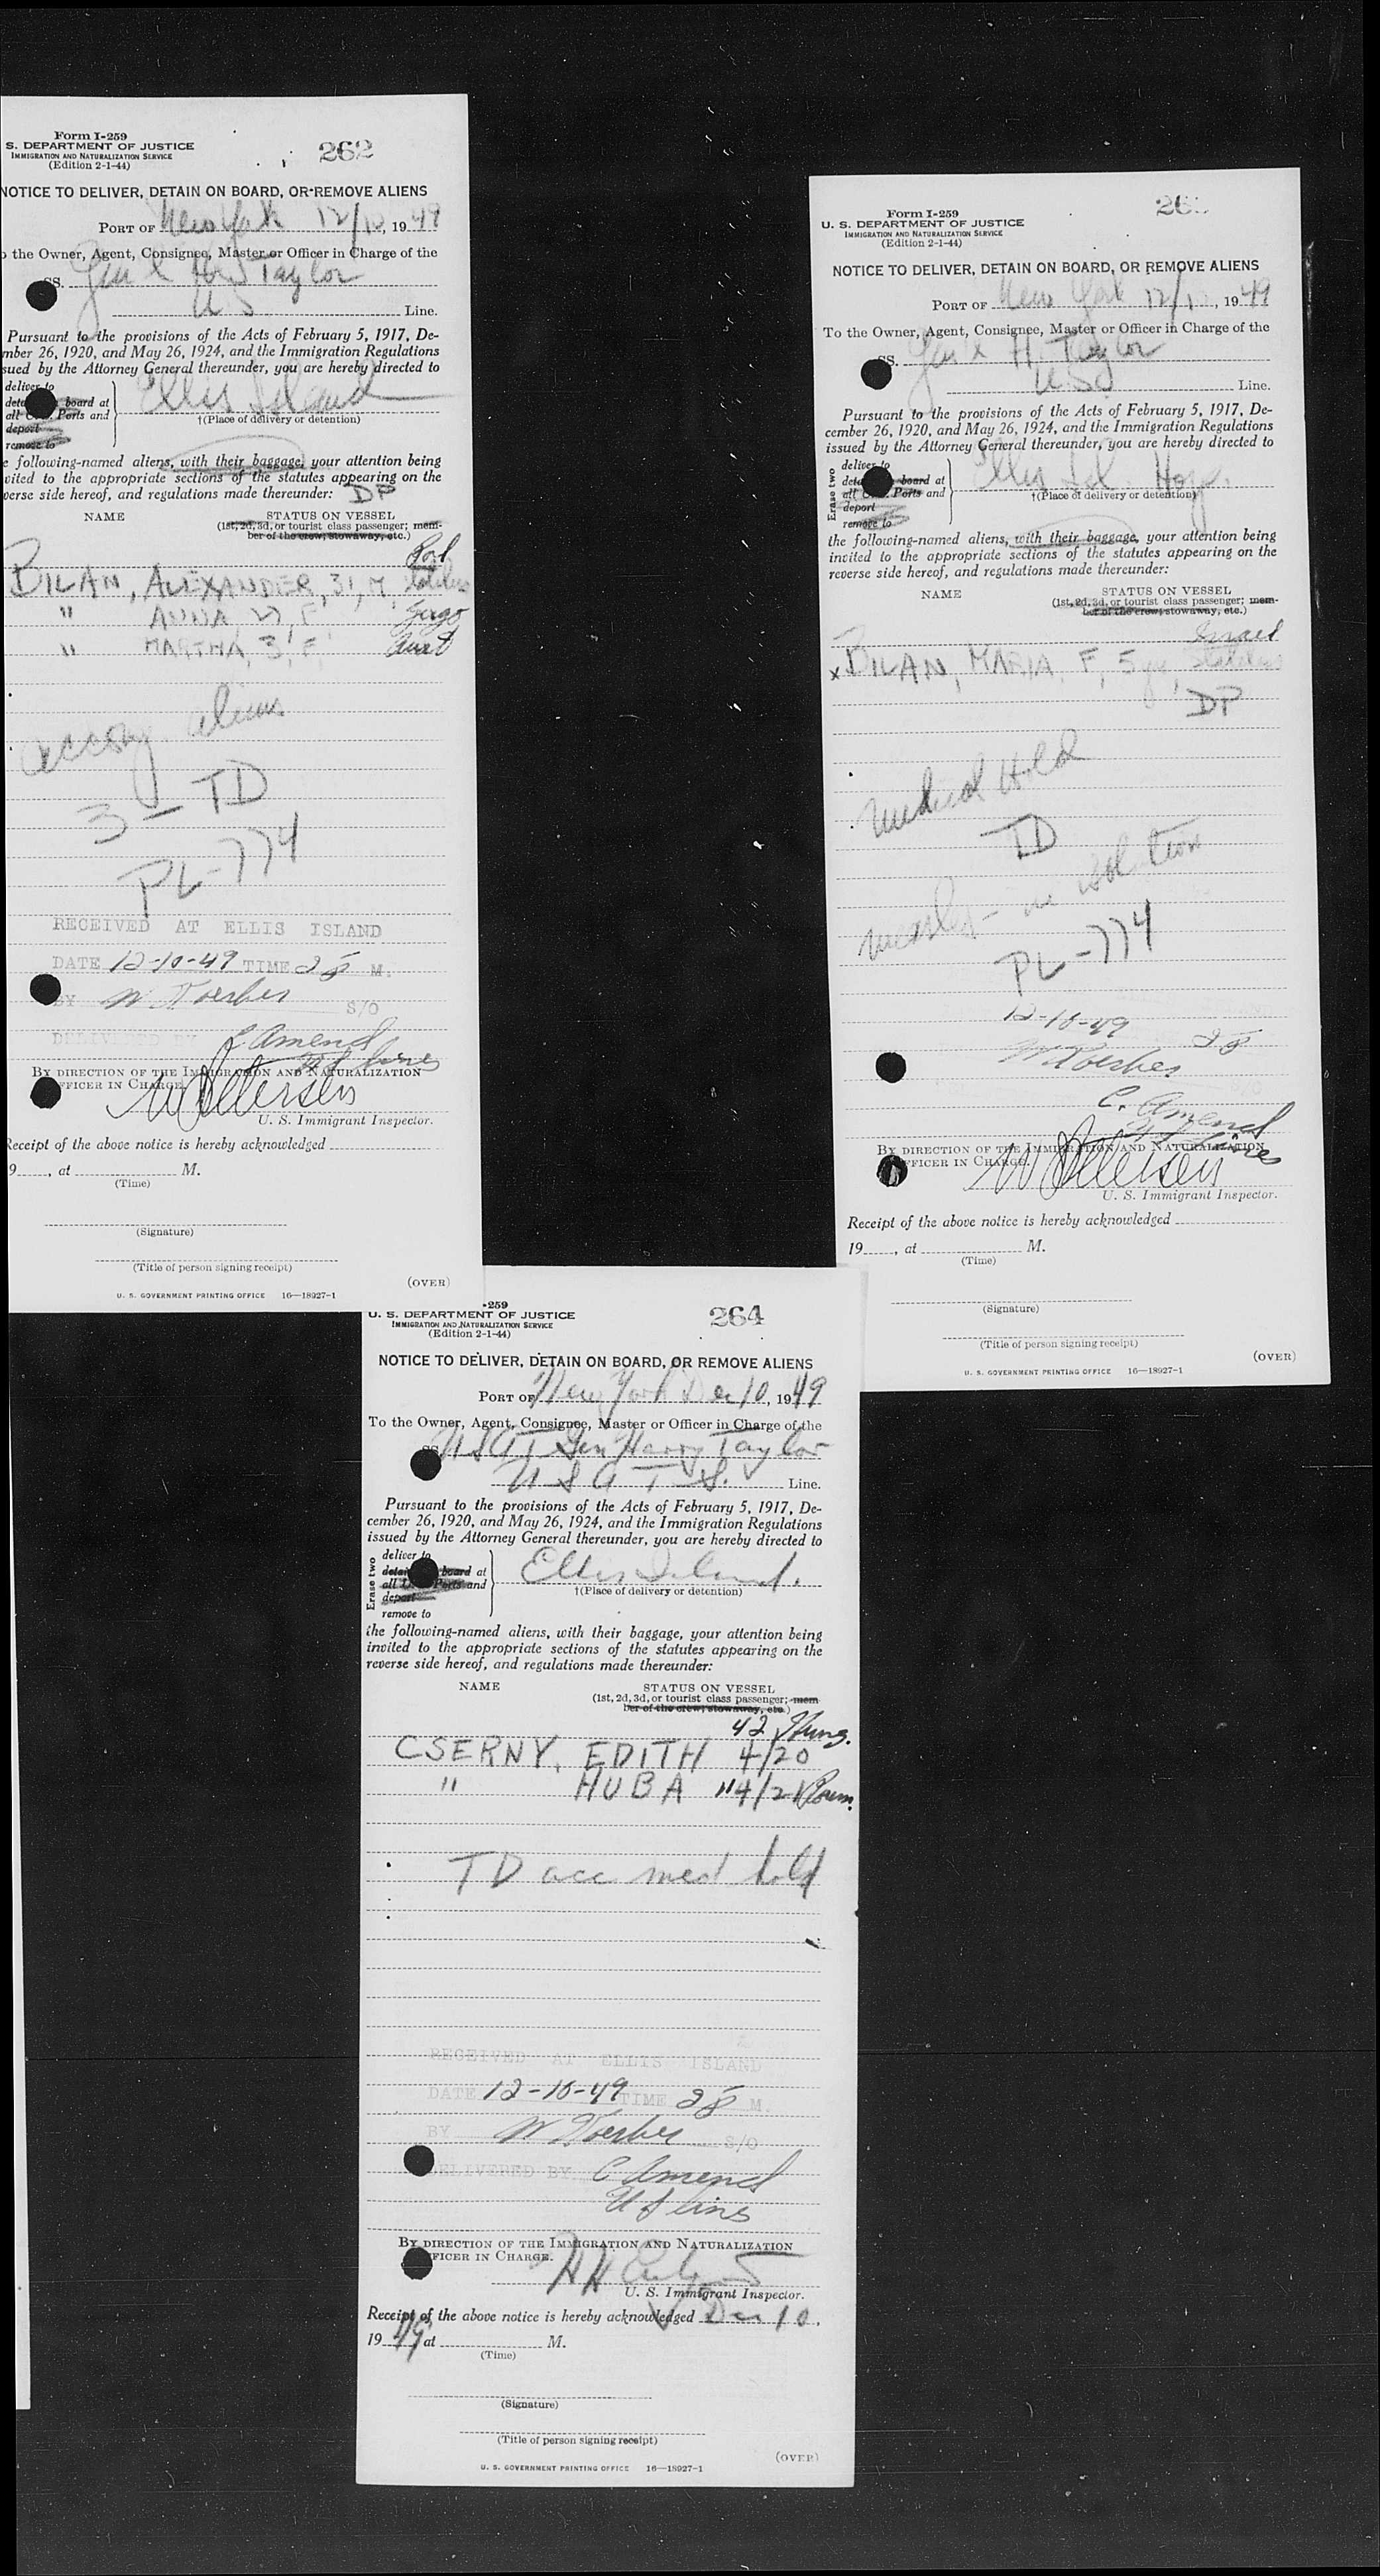 Form I-259
S. DEPARTMENT OF JUSTICE
IMMIGRATION AND NATURALIZATION SERVICE
(Edition 2-1-44)
262
NOTICE TO DELIVER, DETAIN ON BOARD, OR REMOVE ALIENS
PORT OF New York 12/10, 1949
the Owner, Agent, Consignee, Master or Officer in Charge of the
SS. Taylor
US Line.
Pursuant to the provisions of the Acts of February 5, 1917, De-
mber 26, 1920, and May 26, 1924, and the Immigration Regulations
sued by the Attorney General thereunder, you are hereby directed to
deliver to
board at
Ports and
deport
remove to
Ellis Island
†(Place of delivery or detention)
e following-named aliens, with their baggage, your attention being
vited to the appropriate sections of the statutes appearing on the
verse side hereof, and regulations made thereunder: DP
NAME STATUS ON VESSEL
(1st, 2d, 3d, or tourist class passenger; mem-
ber of the crew, stowaway, etc.)
BILAN, ALEXANDER, 31, M,
" ANNA F,
" MARTHA, 3, F,
accomp. aliens
3 - TD
PL-774
RECEIVED AT ELLIS ISLAND
DATE 12-10-49 TIME 28 M.
BY S/O
DELIVERED BY C Amend
U S Lines
BY DIRECTION OF THE IMMIGRATION AND NATURALIZATION
FFICER IN CHARGE.
W Petersen
U. S. Immigrant Inspector.
Receipt of the above notice is hereby acknowledged
9 , at M.
(Time)
(Signature)
(Title of person signing receipt)
(OVER)
U. S. GOVERNMENT PRINTING OFFICE 16—18927-1
Form I-259
U. S. DEPARTMENT OF JUSTICE
IMMIGRATION AND NATURALIZATION SERVICE
(Edition 2-1-44)
NOTICE TO DELIVER, DETAIN ON BOARD, OR REMOVE ALIENS
PORT OF New York 12/10, 1949
To the Owner, Agent, Consignee, Master or Officer in Charge of the
SS. H. Taylor
US Line.
Pursuant to the provisions of the Acts of February 5, 1917, De-
cember 26, 1920, and May 26, 1924, and the Immigration Regulations
issued by the Attorney General thereunder, you are hereby directed to
Erase two
deliver to
board at
Ports and
deport
remove to
Ellis Isl. Hosp.
†(Place of delivery or detention)
the following-named aliens, with their baggage, your attention being
invited to the appropriate sections of the statutes appearing on the
reverse side hereof, and regulations made thereunder:
NAME STATUS ON VESSEL
(1st, 2d, 3d, or tourist class passenger; mem-
ber of the crew, stowaway, etc.)
x BILAN, MARIA, F, 5 yrs,
DP
Medical Hold
TD
measles - in isolation
PL-774
12-10-49 28
C. Amend
U S Lines
BY DIRECTION OF THE IMMIGRATION AND NATURALIZATION
FFICER IN CHARGE.
W Petersen
U. S. Immigrant Inspector.
Receipt of the above notice is hereby acknowledged
19 , at M.
(Time)
(Signature)
(Title of person signing receipt)
(OVER)
U. S. GOVERNMENT PRINTING OFFICE 16—18927-1
-259
U. S. DEPARTMENT OF JUSTICE
IMMIGRATION AND NATURALIZATION SERVICE
(Edition 2-1-44)
264
NOTICE TO DELIVER, DETAIN ON BOARD, OR REMOVE ALIENS
PORT OF New York Dec 10, 1949
To the Owner, Agent, Consignee, Master or Officer in Charge of the
SS. USAT Gen Harry Taylor
U S A T S. Line.
Pursuant to the provisions of the Acts of February 5, 1917, De-
cember 26, 1920, and May 26, 1924, and the Immigration Regulations
issued by the Attorney General thereunder, you are hereby directed to
Erase two
deliver to
board at
Ports and
deport
remove to
Ellis Island.
†(Place of delivery or detention)
the following-named aliens, with their baggage, your attention being
invited to the appropriate sections of the statutes appearing on the
reverse side hereof, and regulations made thereunder:
NAME STATUS ON VESSEL
(1st, 2d, 3d, or tourist class passenger; mem-
ber of the crew, stowaway, etc.)
42 Hung.
CSERNY, EDITH 4/20
" HUBA "4/21 Roum.
TD acc med hold
RECEIVED AT ELLIS ISLAND
DATE 12-10-49 TIME 28 M.
BY S/O
DELIVERED BY C Amend
U S Lines
BY DIRECTION OF THE IMMIGRATION AND NATURALIZATION
FFICER IN CHARGE.
U. S. Immigrant Inspector.
Receipt of the above notice is hereby acknowledged Dec 10,
1949 at M.
(Time)
(Signature)
(Title of person signing receipt)
(OVER)
U. S. GOVERNMENT PRINTING OFFICE 16—18927-1